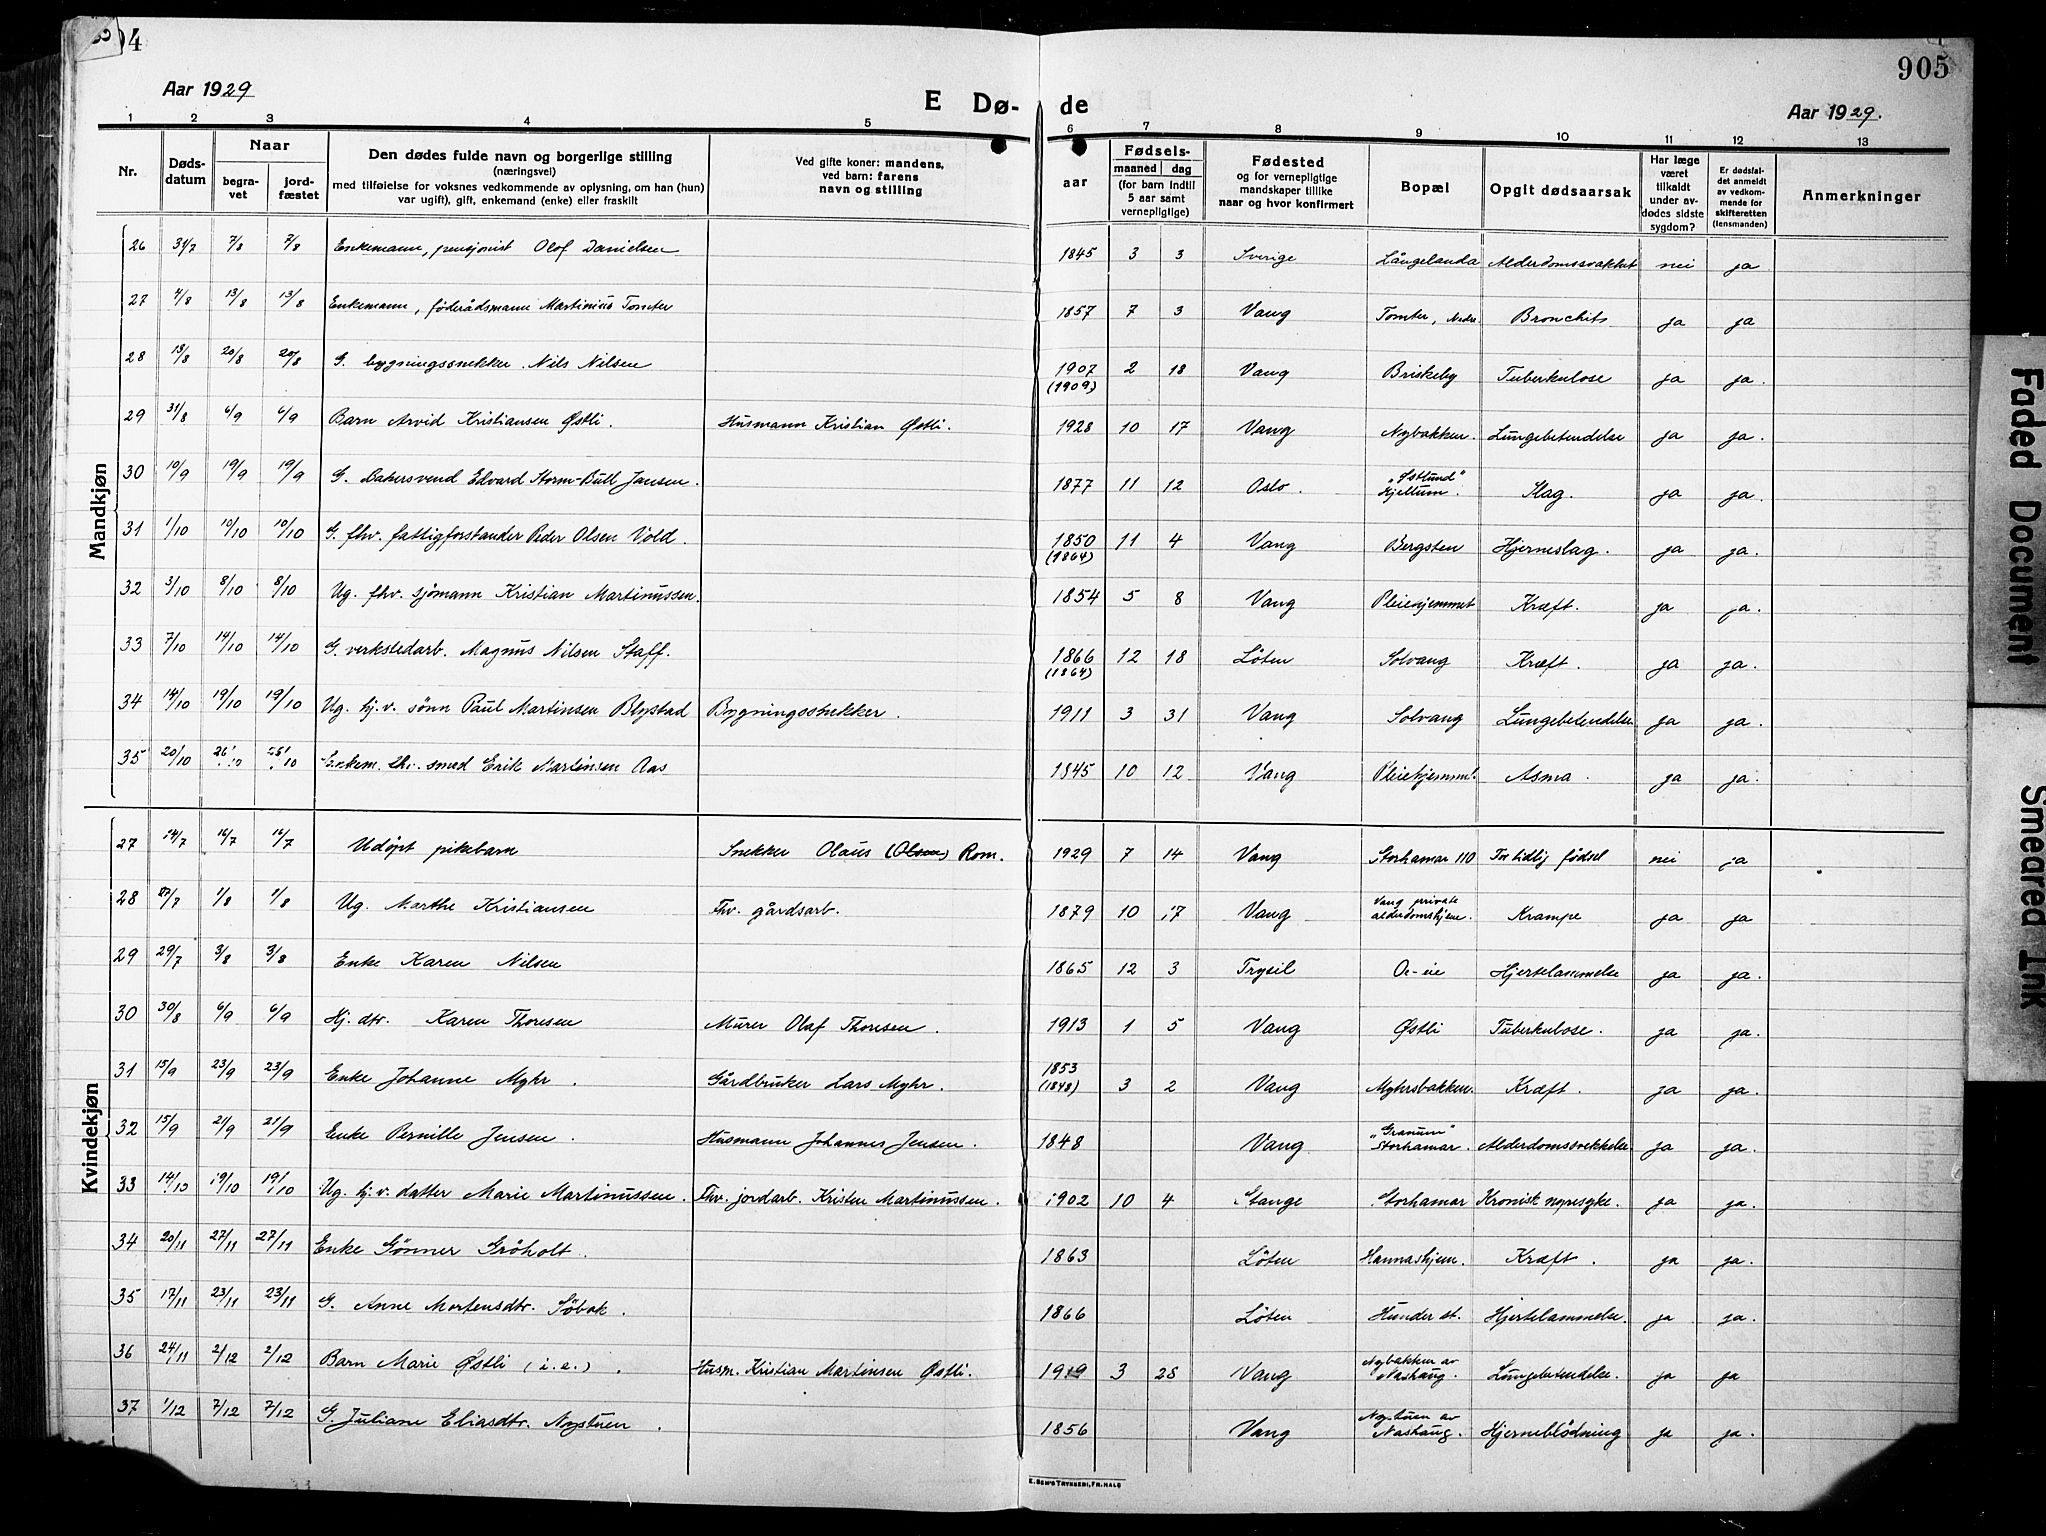 04
905
Aar 1929
E Dø-
de
Aar 1929.
1 2 3 4 5 6 7 8 9 10 11 12 13
Nr.
Døds-
datum
Naar
begra-
vet
jord-
fæstet
Den dødes fulde navn og borgerlige stilling
(næringsvei)
med tilføielse for voksnes vedkommende av oplysning, om han (hun)
var ugift), gift, enkemand (enke) eller fraskilt
Ved gifte koner: mandens,
ved barn: farens
navn og stilling
aar
Fødsels-
maaned dag
(for barn indtil
5 aar samt
vernepligtige)
Fødested
og for vernepligtige
mandskaper tillike
naar og hvor konfirmert
Bopæl
Opgit dødsaarsak
Har læge
været
tilkaldt
under av-
dødes sidste
sygdom?
Er dødsfal-
det anmeldt
av vedkom-
mende for
skifteretten
(lensmanden)
Anmerkninger
Mandkjøn
26 31/7 7/8 7/8 Enkemann, pensjonist Olof Danielsen 1845 3 3 Sverige Långelanda Alderdomssvakhet nei ja
27 4/8 13/8 13/8 Enkemann, føderådsmann Martinius Tomter 1857 7 3 Vang Tomter, Bronchits ja ja
28 13/8 20/8 20/8 G. bygningssnekker Nils Nilsen 1907 (1909) 2 18 Vang Briskeby Tuberkulose ja ja.
29 31/8 6/9 6/9 Barn Arvid Kristiansen Østli. Husmann Kristian Østli. 1928 10 17 Vang Nybakken. Lungebetendelse ja ja.
30 10/9 19/9 19/9 G. Bakersvend Edvard Storm-Bull Jansen. 1877 11 12 Oslo. "Østlund" Hjellum. Slag. ja ja.
31 1/10 10/10 10/10 G. fhv. fattigforstander Peder Olsen Vold. 1850 (1864) 11 4 Vang Bergsten Hjerneslag. ja ja.
32 3/10 8/10 8/10 Ug. fhv. sjømann Kristian Martinussen. 1854 5 8 Vang Pleiehjemmet Kræft. ja ja.
33 7/10 14/10 14/10 G. verkstedarb. Magnus Nilsen Staff. 1866 (1864) 12 18 Löten Solvang Kræft. ja ja.
34 14/10 19/10 19/10 Ug. hj.v. sönn Paul Martinsen Blystad Bygningssnekker. 1911 3 31 Vang Solvang Lungebetendelse ja ja.
35 20/10 26/10 26/10 Enkem. fhv. smed Erik Martinsen Aas 1845 10 12 Vang Pleiehjemm. Asma. ja ja.
Kvindekjøn
27 14/7 16/7 16/7 Udöpt pikebarn Snekker Olaus (Olsen) Rom. 1929 7 14 Vang Storhamar 110 For tidlig födsel nei ja
28 27/7 1/8 1/8 Ug. Marthe Kristiansen Fhv. gårdsarb. 1879 10 17 Vang Vang private alderdomshjem. Krampe ja ja
29 29/7 3/8 3/8 Enke Karen Nilsen 1865 12 3 Trysil Hjertelammelse ja ja.
30 30/8 6/9 6/9 Hj. dtr. Karen Thoresen Murer Olaf Thoresen. 1913 1 5 Vang Østli Tuberkulose. ja ja.
31 15/9 23/9 23/9 Enke Johanne Myhr. Gårdbruker Lars Myhr. 1853 (1848) 3 2 Vang Myhrsbakken. Kræft. ja ja.
32 15/9 21/9 21/9 Enke Pernille Jensen. Husmann Johannes Jensen. 1848 Vang. "Granum" Storhamar. Alderdomssvekkelse. ja ja.
33 14/10 19/10 19/10 Ug. hj.v. datter Marie Martinussen. Fhv. jordarb. Kristen Martinussen. 1902 10 4 Stange Storhamar Kronisk nyresyke. ja ja.
34 20/11 27/11 27/11 Enke Gönner Gröholt. 1863 Löten Hannashjem. Kræft. ja ja.
35 17/11 23/11 23/11 G. Anne Mortensdtr. Söbak. 1866 Löten Hunder st. Hjertelammelse. ja ja.
36 24/11 2/12 2/12 Barn Marie Østli (i.e.). Husm. Kristian Martinsen Østli. 1919 3 28 Vang Nybakken av Nashaug. Lungebetendelse. ja ja
37 1/12 7/12 7/12 G. Juliane Eliasdtr. Nystuen. 1856 Vang Nystuen av Nashaug. Hjerneblödning ja ja.
E. SEM'S TRYKKERI, FR.HALD
Faded Document
Smeared Ink